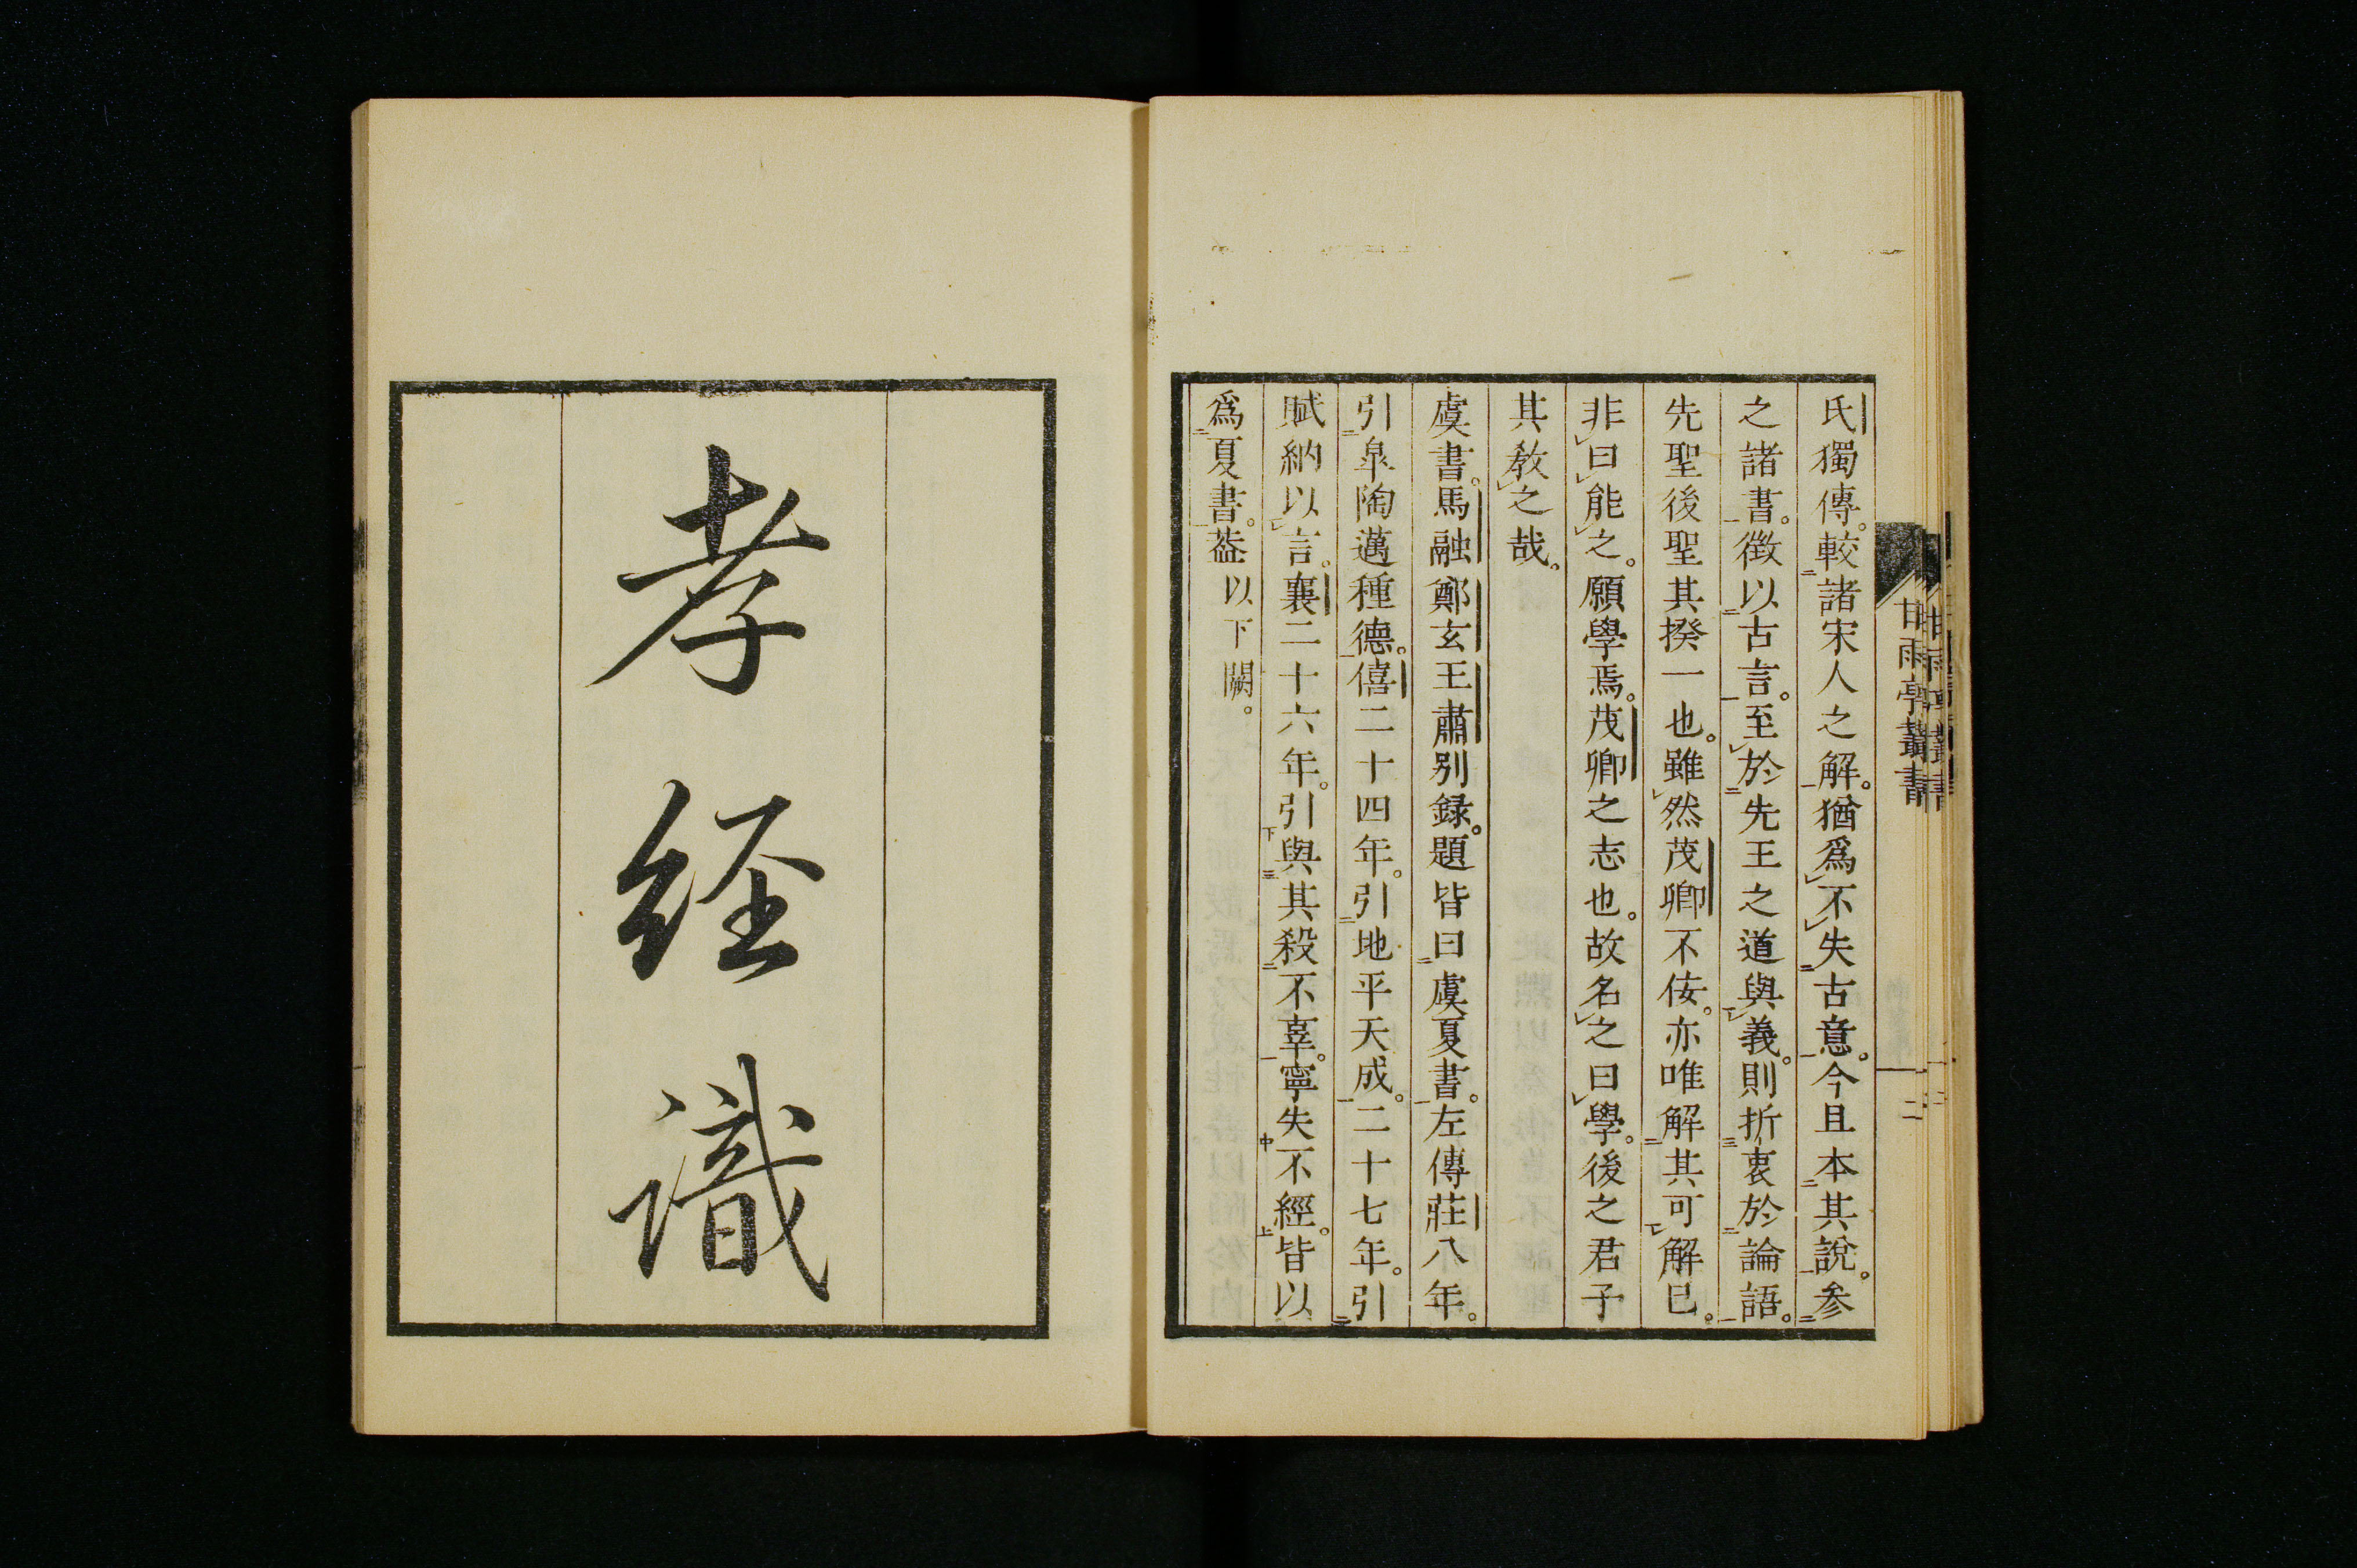 氏獨傳。較諸宋人之解。猶爲不失古意。今且本其說。参
之諸書。徴以古言。至於先王之道與義。則折衷於論語。
先聖後聖其揆一也。雖然茂卿不侫。亦唯解其可解已。
非曰能之。願學焉。茂卿之志也。故名之曰學。後之君子
其敎之哉。
虞書。馬融鄭玄王肅別録。題皆曰虞夏書。左傳莊八年。
引皐陶邁種德。僖二十四年。引地平天成。二十七年。引
賦納以言。襄二十六年。引與其殺不辜。寧失不經。皆以
爲夏書。葢以下闕。
甘雨亭叢書
二
孝経識